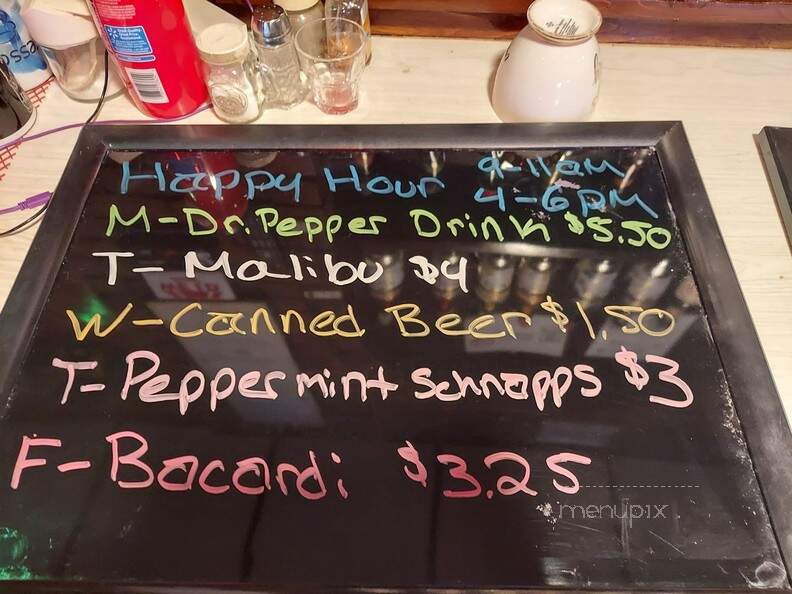 Happy Hour 9-11am
4-6pm
M-Dr. Pepper Drink $5.50
T- Malibu $4
W-Canned Beer $1.50
T-Peppermint Schnapps $3
F-Bacardi $3.25
menupix